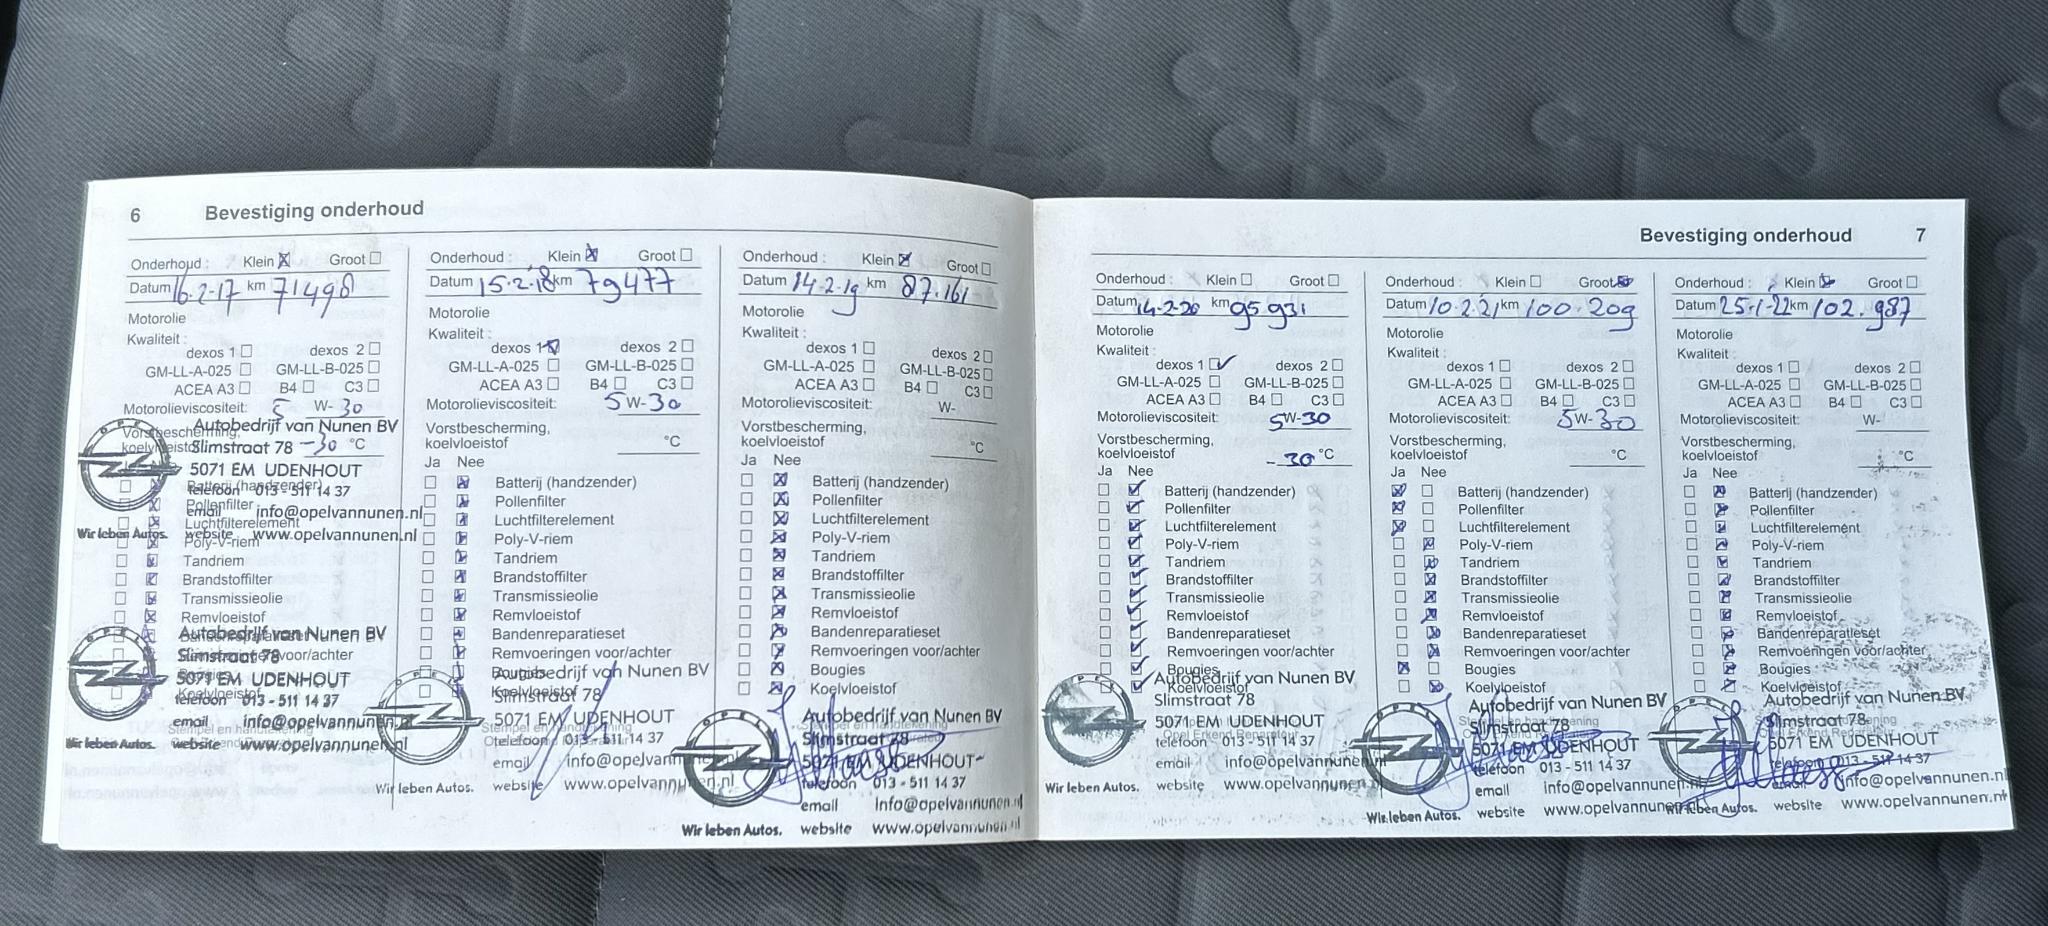 6 Bevestiging onderhoud
Onderhoud : Klein Groot
Datum 16-2-17 km 71498
Motorolie
Kwaliteit :
dexos 1 dexos 2
GM-LL-A-025 GM-LL-B-025
ACEA A3 B4 C3
Motorolieviscositeit: 5 W-30
Vorstbescherming,
koelvloeistof -30 °C
Autobedrijf van Nunen BV
Slimstraat 78
5071 EM UDENHOUT
telefoon 013 - 511 14 37
email info@opelvannunen.nl
Wir leben Autos. website www.opelvannunen.nl
Batterij (handzender)
Pollenfilter
Luchtfilterelement
Poly-V-riem
Tandriem
Brandstoffilter
Transmissieolie
Remvloeistof
Bandenreparatieset
Remvoeringen voor/achter
Bougies
Koelvloeistof
OPEL
Autobedrijf van Nunen BV
Slimstraat 78
5071 EM UDENHOUT
telefoon 013 - 511 14 37
email info@opelvannunen.nl
Wir leben Autos. website www.opelvannunen.nl
Onderhoud : Klein Groot
Datum 15-2-18 km 79477
Motorolie
Kwaliteit :
dexos 1 dexos 2
GM-LL-A-025 GM-LL-B-025
ACEA A3 B4 C3
Motorolieviscositeit: 5W-30
Vorstbescherming,
koelvloeistof °C
Ja Nee
Batterij (handzender)
Pollenfilter
Luchtfilterelement
Poly-V-riem
Tandriem
Brandstoffilter
Transmissieolie
Remvloeistof
Bandenreparatieset
Remvoeringen voor/achter
Bougies
Koelvloeistof
Autobedrijf van Nunen BV
Slimstraat 78
5071 EM UDENHOUT
telefoon 013 - 511 14 37
email info@opelvannunen.nl
Wir leben Autos. website www.opelvannunen.nl
Onderhoud : Klein Groot
Datum 14-2-19 km 87.161
Motorolie
Kwaliteit :
dexos 1 dexos 2
GM-LL-A-025 GM-LL-B-025
ACEA A3 B4 C3
Motorolieviscositeit: W-
Vorstbescherming,
koelvloeistof °C
Ja Nee
Batterij (handzender)
Pollenfilter
Luchtfilterelement
Poly-V-riem
Tandriem
Brandstoffilter
Transmissieolie
Remvloeistof
Bandenreparatieset
Remvoeringen voor/achter
Bougies
Koelvloeistof
OPEL
Autobedrijf van Nunen BV
Slimstraat 78
5071 EM UDENHOUT
telefoon 013 - 511 14 37
email info@opelvannunen.nl
Wir leben Autos. website www.opelvannunen.nl
Bevestiging onderhoud 7
Onderhoud : Klein Groot
Datum 14-2-20 km 95931
Motorolie
Kwaliteit :
dexos 1 dexos 2
GM-LL-A-025 GM-LL-B-025
ACEA A3 B4 C3
Motorolieviscositeit: 5W-30
Vorstbescherming,
koelvloeistof -30 °C
Ja Nee
Batterij (handzender)
Pollenfilter
Luchtfilterelement
Poly-V-riem
Tandriem
Brandstoffilter
Transmissieolie
Remvloeistof
Bandenreparatieset
Remvoeringen voor/achter
Bougies
Koelvloeistof
Autobedrijf van Nunen BV
Slimstraat 78
5071 EM UDENHOUT
Opel Erkend Reparateur
telefoon 013 - 511 14 37
email info@opelvannunen.nl
Wir leben Autos. website www.opelvannunen.nl
Onderhoud : Klein Groot
Datum 10-2-21 km 100.209
Motorolie
Kwaliteit :
dexos 1 dexos 2
GM-LL-A-025 GM-LL-B-025
ACEA A3 B4 C3
Motorolieviscositeit: 5W-30
Vorstbescherming,
koelvloeistof °C
Ja Nee
Batterij (handzender)
Pollenfilter
Luchtfilterelement
Poly-V-riem
Tandriem
Brandstoffilter
Transmissieolie
Remvloeistof
Bandenreparatieset
Remvoeringen voor/achter
Bougies
Koelvloeistof
Autobedrijf van Nunen BV
Slimstraat 78
5071 EM UDENHOUT
telefoon 013 - 511 14 37
email info@opelvannunen.nl
Wir leben Autos. website www.opelvannunen.nl
Onderhoud : Klein Groot
Datum 25-1-22 km 102.987
Motorolie
Kwaliteit :
dexos 1 dexos 2
GM-LL-A-025 GM-LL-B-025
ACEA A3 B4 C3
Motorolieviscositeit: W-
Vorstbescherming,
koelvloeistof °C
Ja Nee
Batterij (handzender)
Pollenfilter
Luchtfilterelement
Poly-V-riem
Tandriem
Brandstoffilter
Transmissieolie
Remvloeistof
Bandenreparatieset
Remvoeringen voor/achter
Bougies
Koelvloeistof
Autobedrijf van Nunen BV
Slimstraat 78
5071 EM UDENHOUT
telefoon 013 - 511 14 37
email info@opelvannunen.nl
Wir leben Autos. website www.opelvannunen.nl